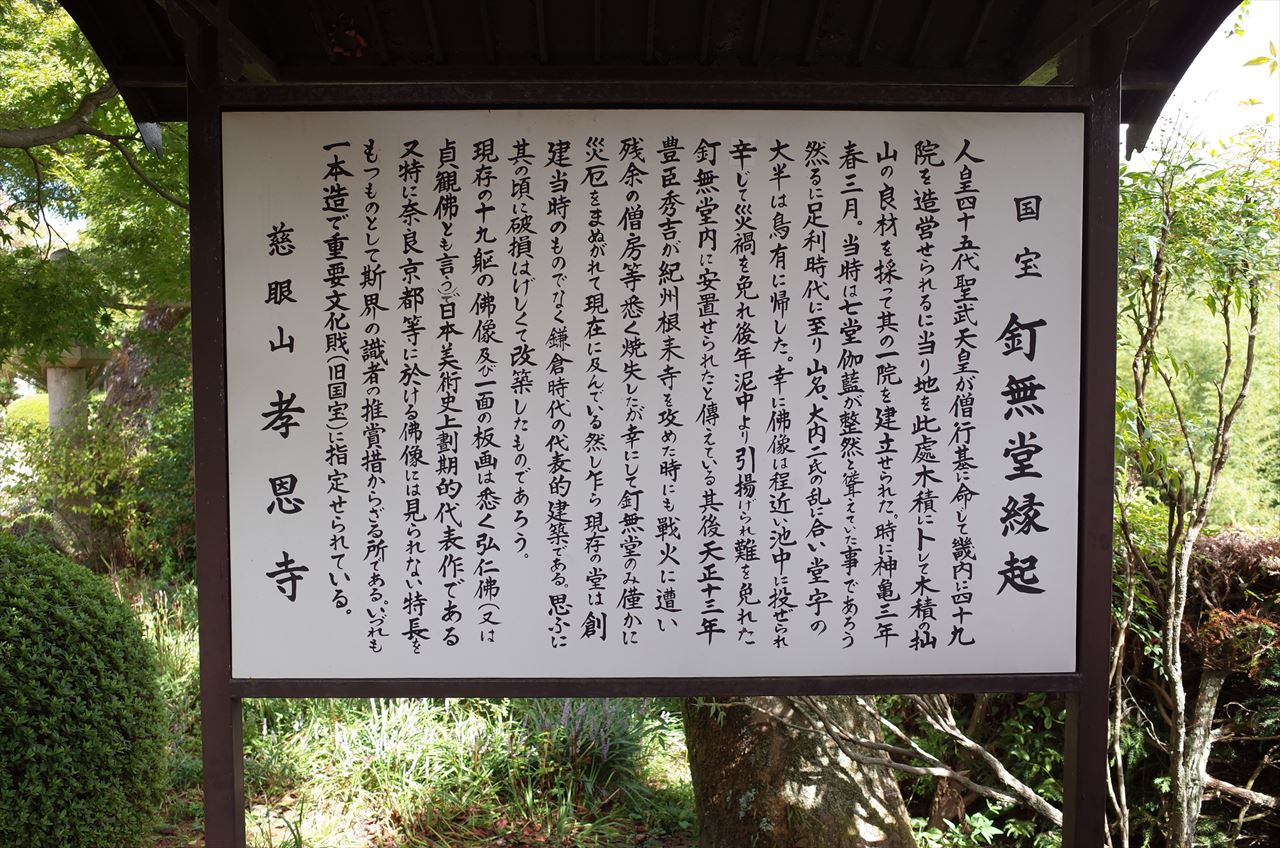 国宝 釘無堂縁起
人皇四十五代聖武天皇が僧行基に命して畿内に四十九
院を造営せられるに当り地を此處木積に卜して木積の杣
山の良材を採って其の一院を建立せられた。時に神亀三年
春三月。当時は七堂伽藍が整然と聳えていた事であろう
然るに足利時代に至り山名、大内二氏の乱に合い堂宇の
大半は烏有に帰した。幸に佛像は程近い池中に投ぜられ
辛じて災禍を免れ後年泥中より引揚げられ難を免れた
釘無堂内に安置せられたと傳えている其後天正十三年
豊臣秀吉が紀州根来寺を攻めた時にも戦火に遭い
残余の僧房等悉く焼失したが幸にして釘無堂のみ僅かに
災厄をまぬがれて現在に及んでいる然し乍ら現存の堂は創
建当時のものでなく鎌倉時代の代表的建築である。思ふに
其の頃に破損はげしくて改築したものであろう。
現存の十九躯の佛像及び一面の板画は悉く弘仁佛(又は
貞観佛とも言う)で日本美術史上劃期的代表作である
又特に奈良京都等に於ける佛像には見られない特長を
もつものとして斯界の識者の推賞措からざる所である。いづれも
一本造で重要文化財(旧国宝)に指定せられている。
慈眼山 孝恩寺